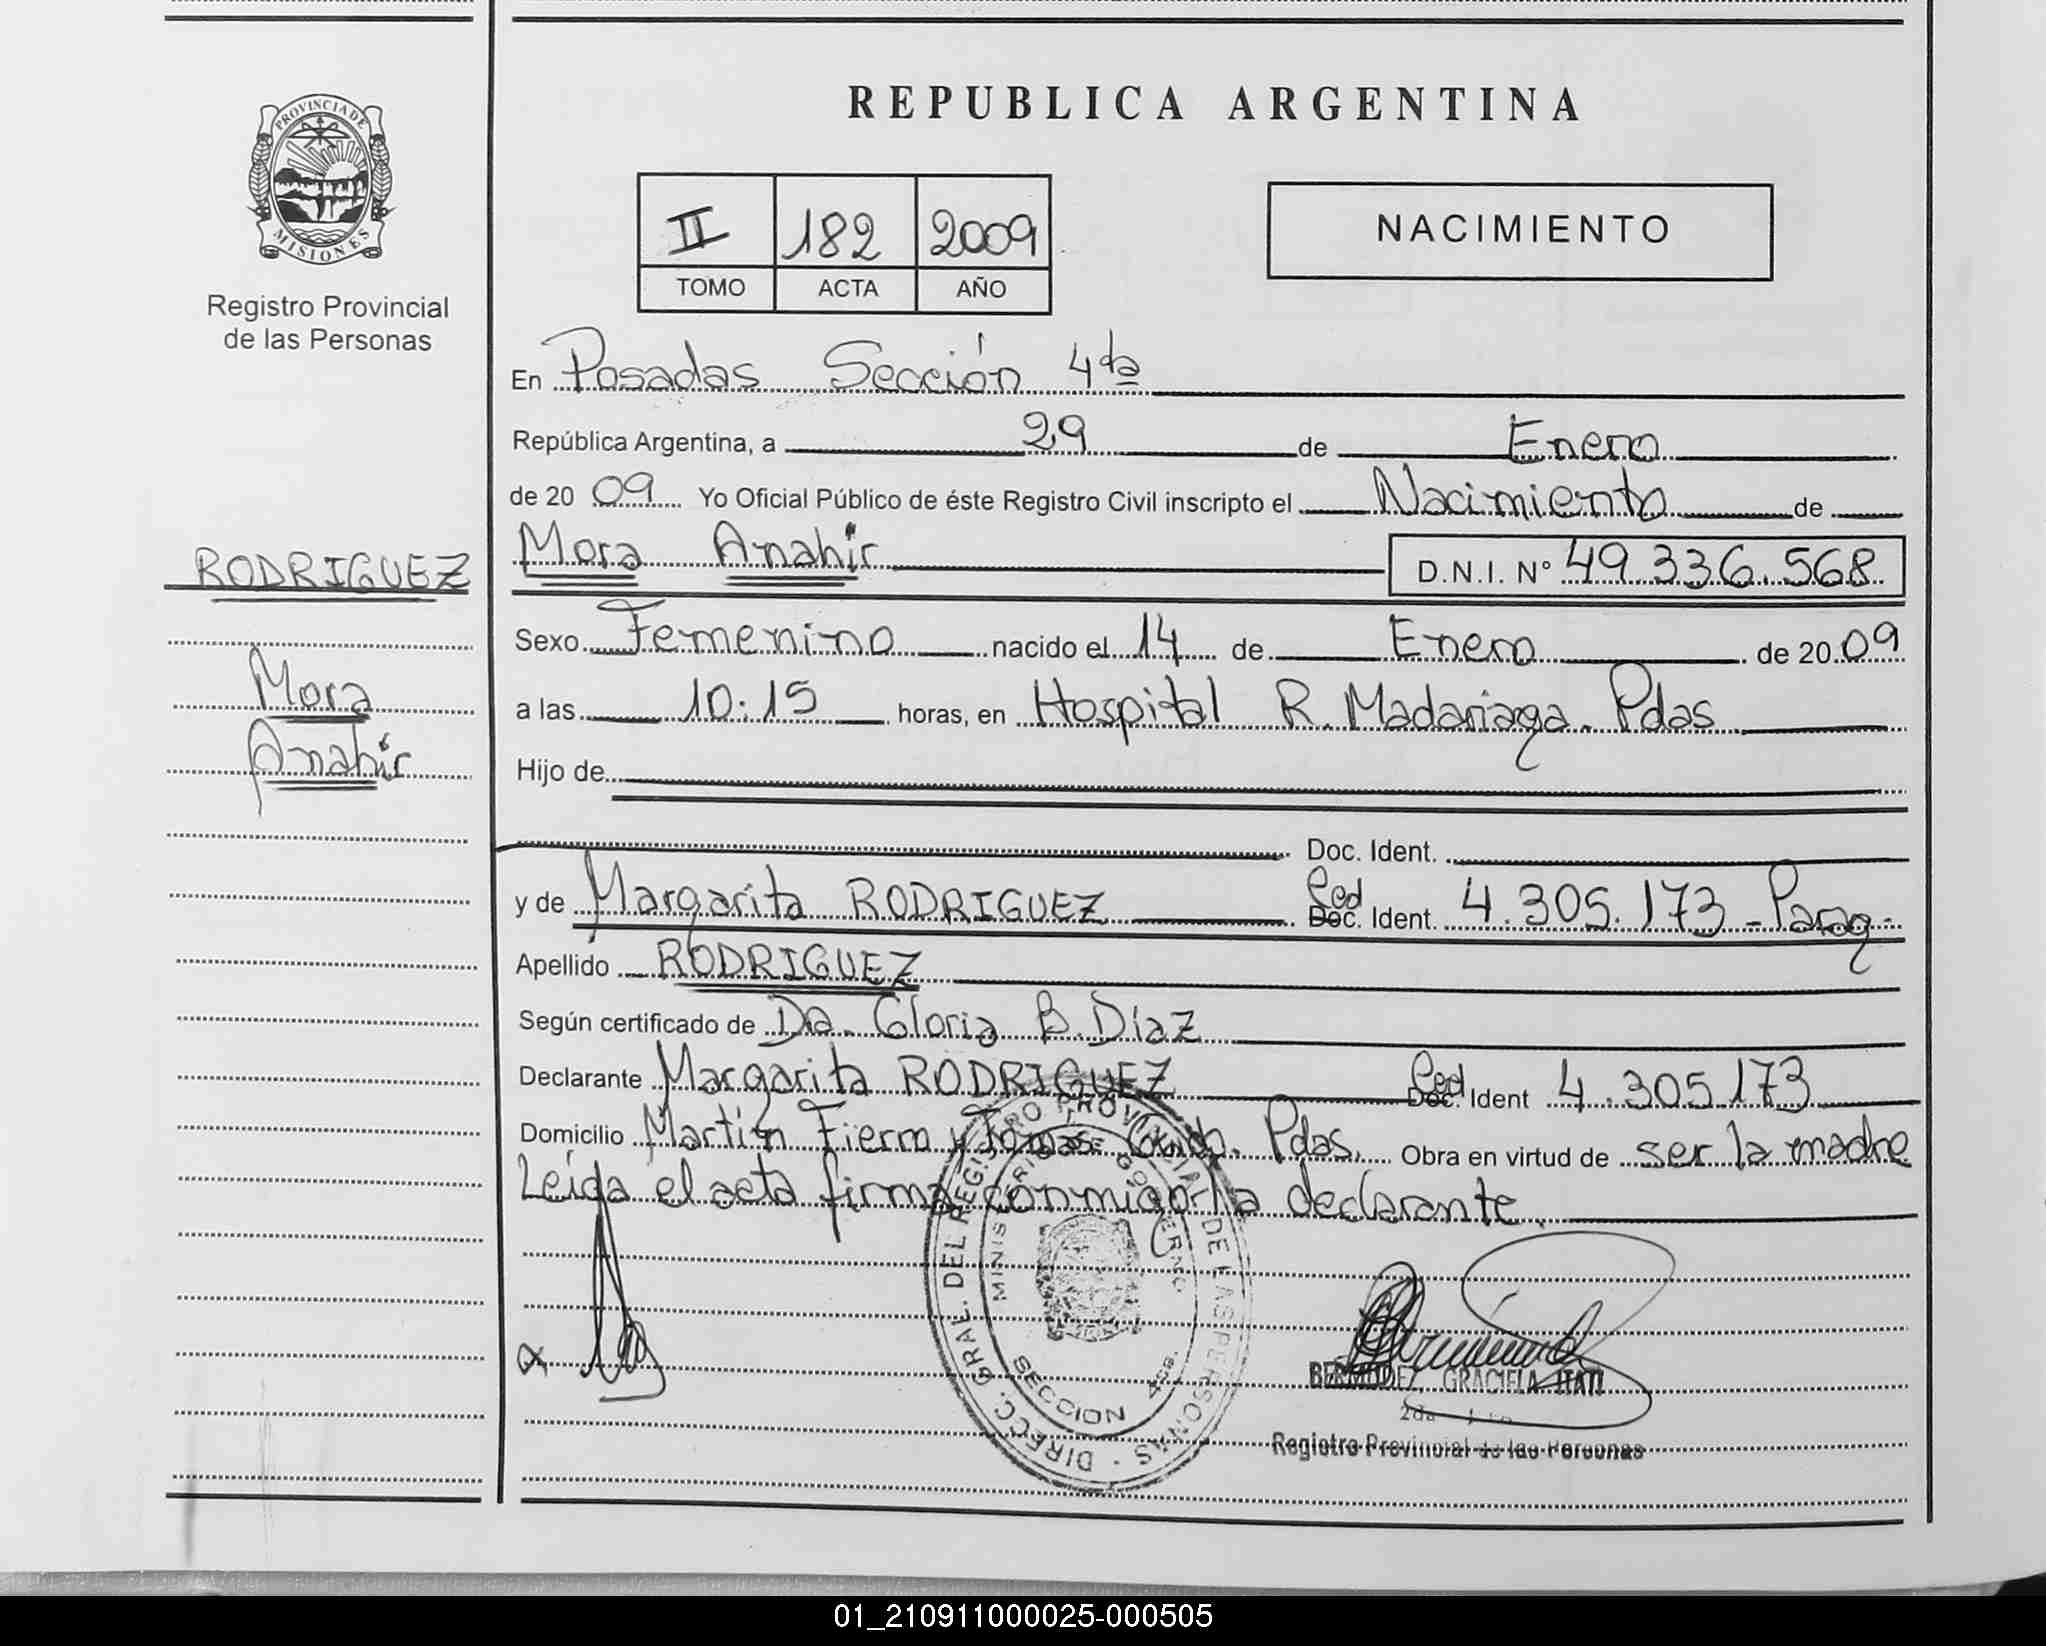 REPUBLICA ARGENTINA
PROVINCIA DE MISIONES
Registro Provincial
de las Personas
II 182 2009
TOMO ACTA AÑO
NACIMIENTO
En Posadas Sección 4ta
República Argentina, a 29 de Enero
de 2009 Yo Oficial Público de éste Registro Civil inscripto el Nacimiento de
RODRIGUEZ
Mora
Anahir
Mora Anahir D.N.I. N° 49.336.568
Sexo Femenino nacido el 14 de Enero de 2009
a las 10:15 horas, en Hospital R. Madariaga. Pdas
Hijo de
Doc. Ident.
y de Margarita RODRIGUEZ Ced Doc. Ident. 4.305.173 - Parag.
Apellido RODRIGUEZ
Según certificado de Dra. Gloria B. Díaz
Declarante Margarita RODRIGUEZ Ced Doc. Ident 4.305.173
Domicilio Martín Fierro y Tomas Pdas. Obra en virtud de ser la madre
Leída el acta firma conmigo la declarante.
DIRECC. GRAL. DEL REGISTRO PROVINCIAL DE LAS PERSONAS
MINISTERIO DE GOBIERNO
SECCION 4ta.
BERMUDEZ, GRACIELA ITATI
2da
Registro Provincial de las Personas
01_210911000025-000505